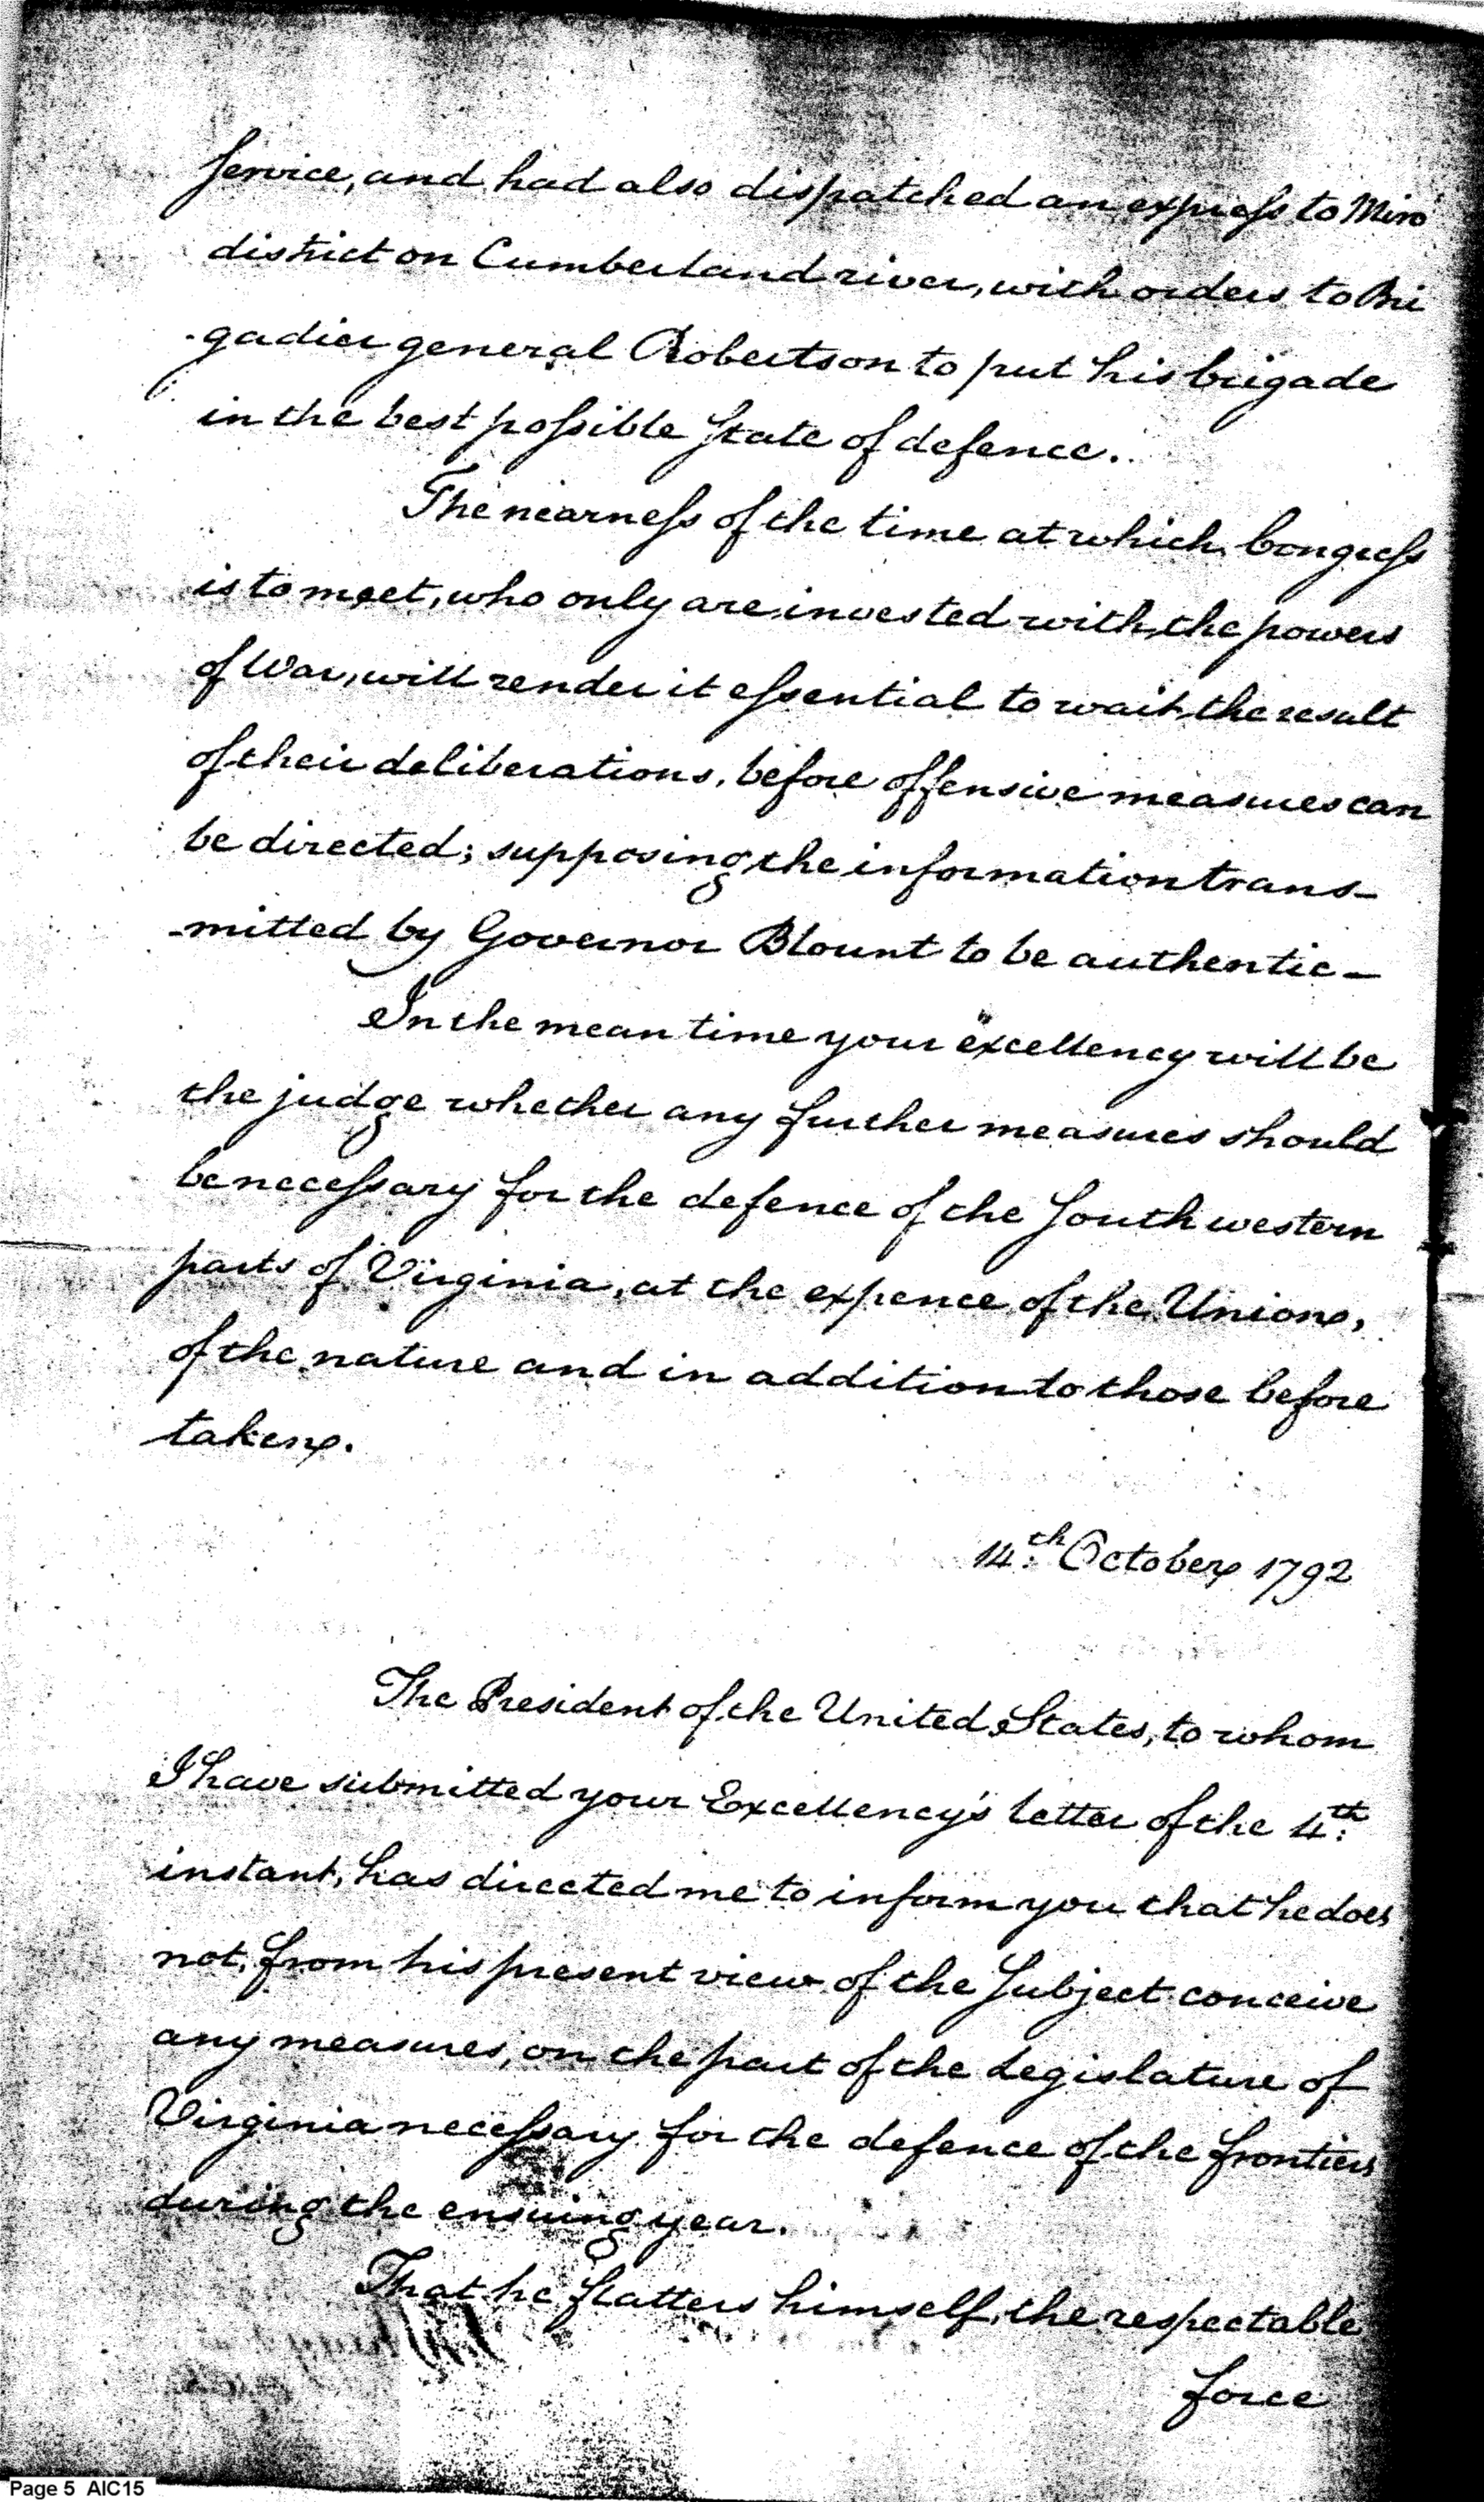 Service, and had also dispatched an express to Miro
district on Cumberland river, with orders to Bri
-gadier general Robertson to put his brigade
in the best possible State of defence.
The nearness of the time at which Congress
is to meet, who only are invested with the powers
of War, will render it essential to wait the result
of their deliberations, before offensive measures can
be directed; supposing the information trans-
-mitted by Governor Blount to be authentic-
In the mean time your excellency will be
the judge whether any further measures should
be necessary for the defence of the Southwestern
parts of Virginia, at the expence of the Union,
of the nature and in addition to those before
taken.
14th October 1792
The President of the United States, to whom
I have submitted your Excellency's letter of the 4th
instant, has directed me to inform you that he does
not, from his present view of the Subject conceive
any measures, on the part of the Legislature of
Virginia necessary for the defence of the frontiers
during the ensuing year.
That he flatters himself, the respectable
force
Page 5 AIC15